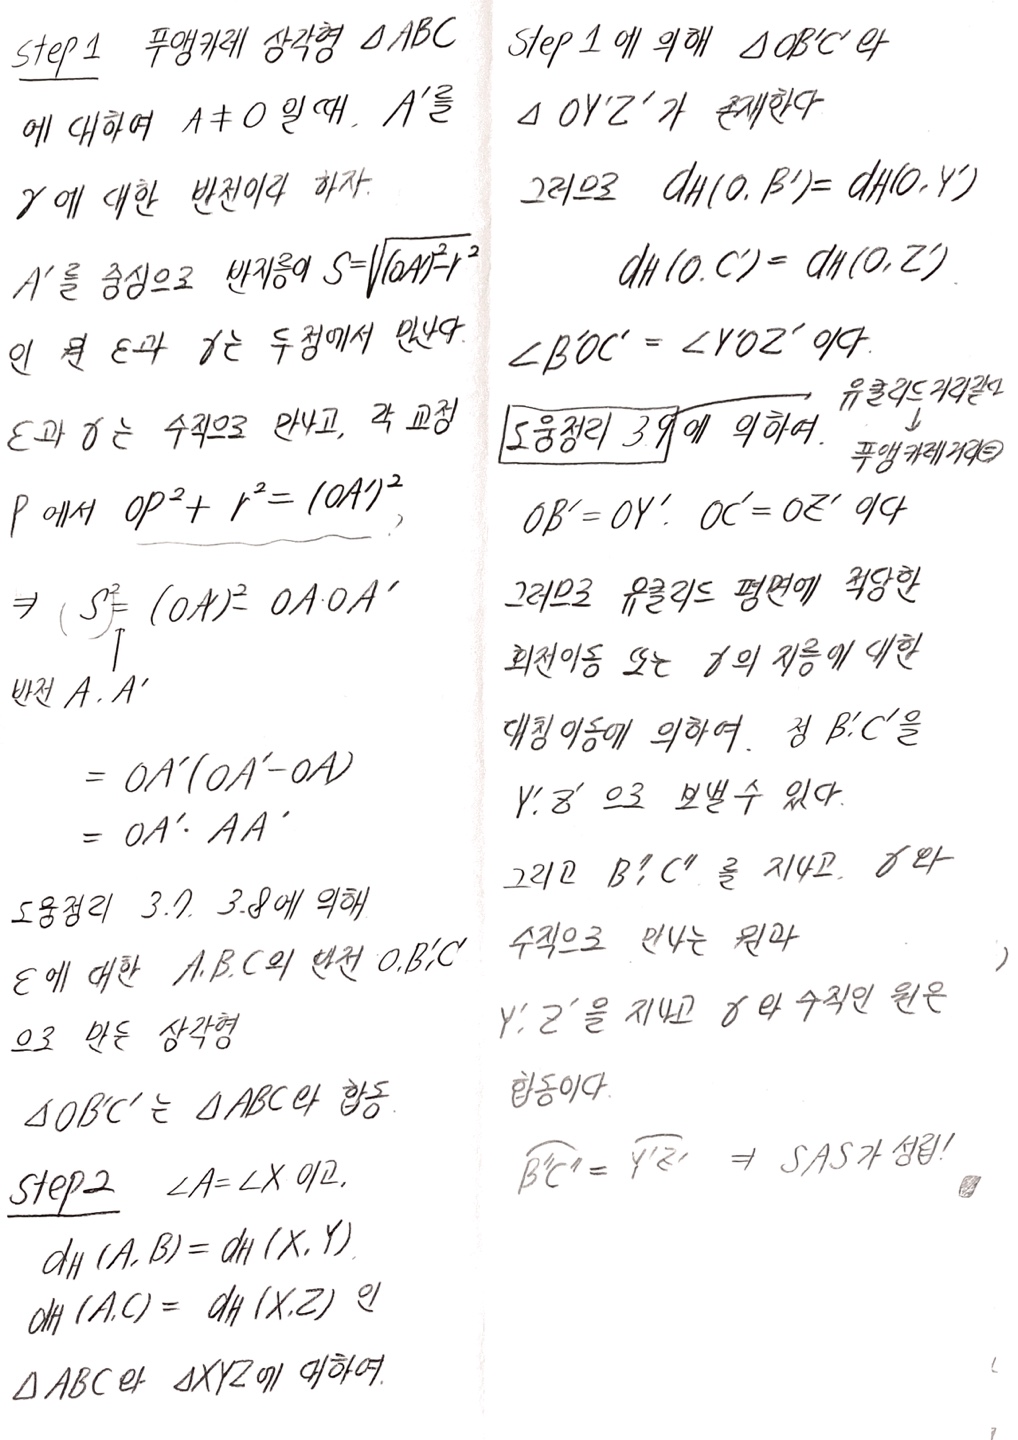 step 1 푸앵카레 삼각형 △ABC
에 대하여 A≠O 일 때. A′를
γ에 대한 반전이라 하자.
A′를 중심으로 반지름이 S=√(OA′)²-r²
인 원 ε과 γ는 두점에서 만난다.
ε과 γ는 수직으로 만나고, 각 교점
P 에서 OP²+ r²= (OA′)²,
⇒ (S²)= (OA′)²- OA·OA′
↑
반전 A. A′
= OA′(OA′-OA)
= OA′· AA′
도움정리 3.7. 3.8에 의해
ε에 대한 A.B.C의 반전 O.B′.C′
으로 만든 삼각형
△OB′C′는 △ABC와 합동.
step2 ∠A=∠X 이고,
dH(A,B)=dH(X,Y).
dH(A.C)= dH(X.Z) 인
△ABC와 △XYZ에 대하여.
Step 1에 의해 △OB′C′와
△OY′Z′가 존재한다
그러므로 dH(O.B′)=dH(O.Y′)
dH(O.C′)= dH(O,Z′).
∠B′OC′ = ∠Y′OZ′ 이다.
유클리드거리같다
↓
푸앵카레거리⊜
도움정리 3.9에 의하여.
OB′=OY′. OC′=OZ′ 이다
그러므로 유클리드 평면에 적당한
회전이동 또는 γ의 지름에 대한
대칭이동에 의하여. 점 B′.C′을
Y′.Z′ 으로 보낼 수 있다.
그리고 B″.C″ 를 지나고. γ와
수직으로 만나는 원과
Y′.Z′을 지나고 γ와 수직인 원은
합동이다.
B″C″ = Y′Z′ ⇒ SAS가 성립!